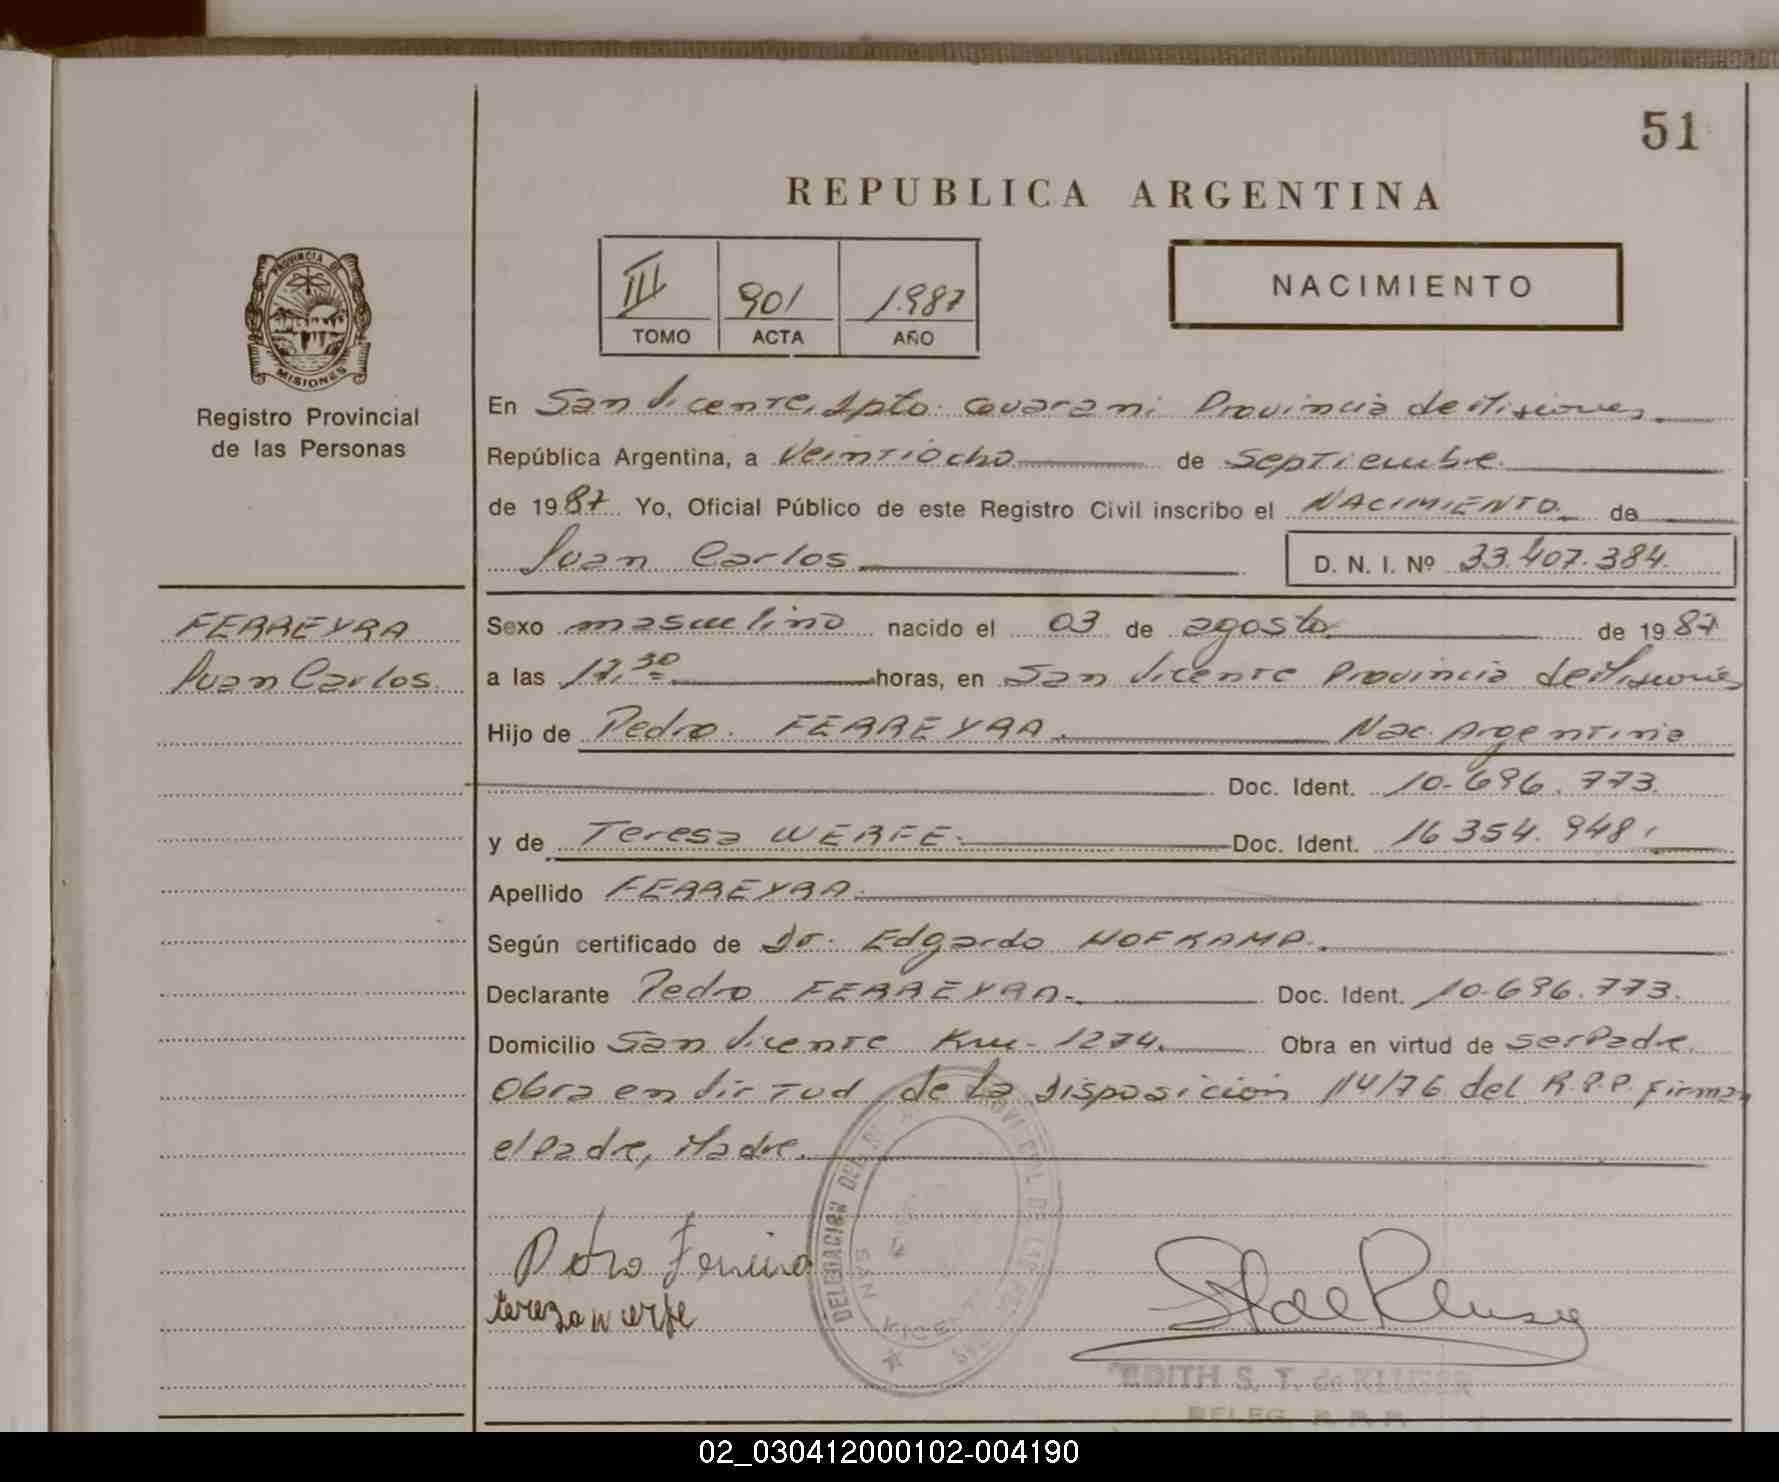 51
REPUBLICA ARGENTINA
III 901 1.987
TOMO ACTA AÑO
NACIMIENTO
PROVINCIA DE
MISIONES
Registro Provincial
de las Personas
En San Vicente, Dpto. Guarani Provincia de Misiones
República Argentina, a Veintiocho de Septiembre
de 1987 Yo, Oficial Público de este Registro Civil inscribo el NACIMIENTO de
Juan Carlos D. N. I. Nº 33.407.384.
FERREYRA
Juan Carlos
Sexo masculino nacido el 03 de agosto de 1987
a las 17,30 horas, en San Vicente Provincia de Misiones
Hijo de Pedro FERREYRA Nac. Argentina
Doc. Ident. 10.696.773.
y de Teresa WERFE. Doc. Ident. 16.354.948.
Apellido FERREYRA.
Según certificado de Dr. Edgardo HOFKAMP.
Declarante Pedro FERREYRA. Doc. Ident. 10.696.773.
Domicilio San Vicente Km. 1274. Obra en virtud de ser Padre.
Obra en virtud de la disposición 114/76 del R.P.P. Firman
el Padre, Madre.
Pedro Ferreira
tereza werfe
DELEGACION DEL
SAN VICENTE
EDITH S. T. de KLUSER
DELEG. R.P.P.
02_030412000102-004190